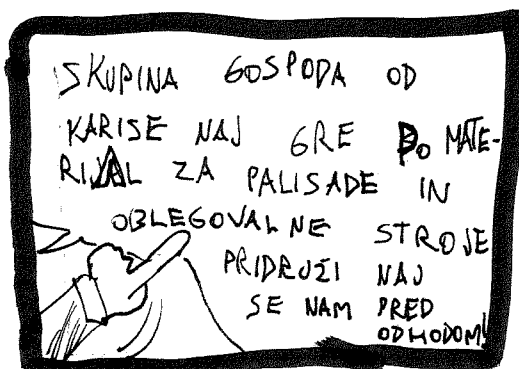 SKUPINA GOSPODA OD
KARISE NAJ GRE PO MATE-
RIJAL ZA PALISADE IN
OBLEGOVALNE STROJE
PRIDRUŽI NAJ
SE NAM PRED
ODHODOM!